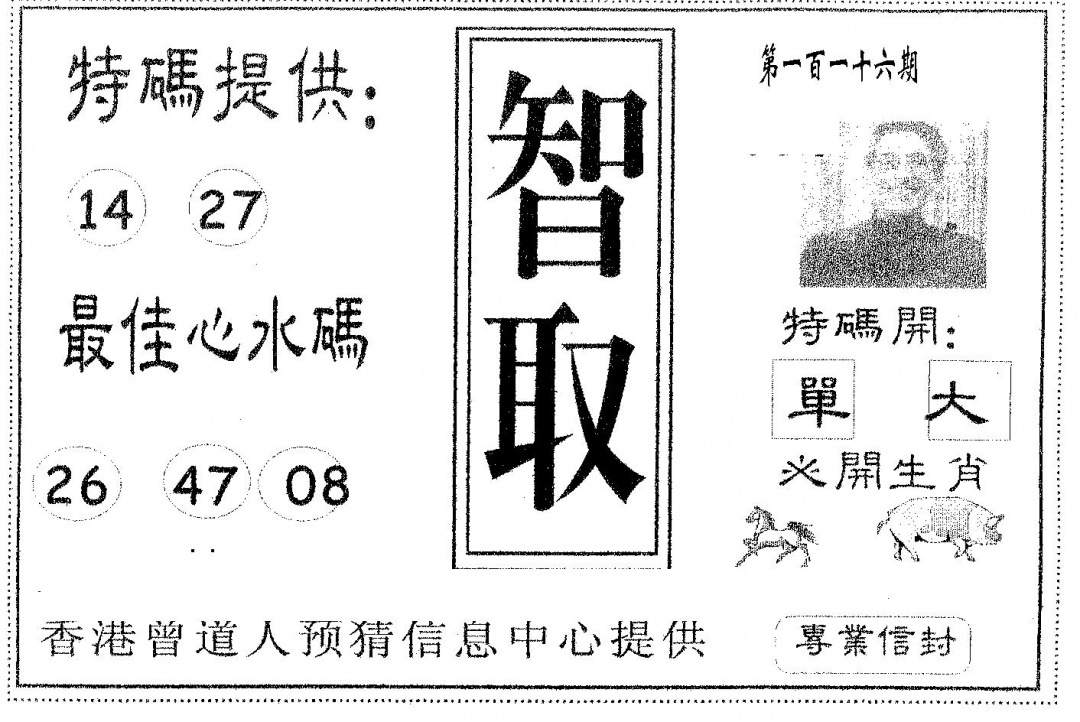 特碼提供：
14 27
最佳心水碼
26 47 08
智取
第一百一十六期
特碼開：
單 大
必開生肖
香港曾道人预猜信息中心提供
專業信封